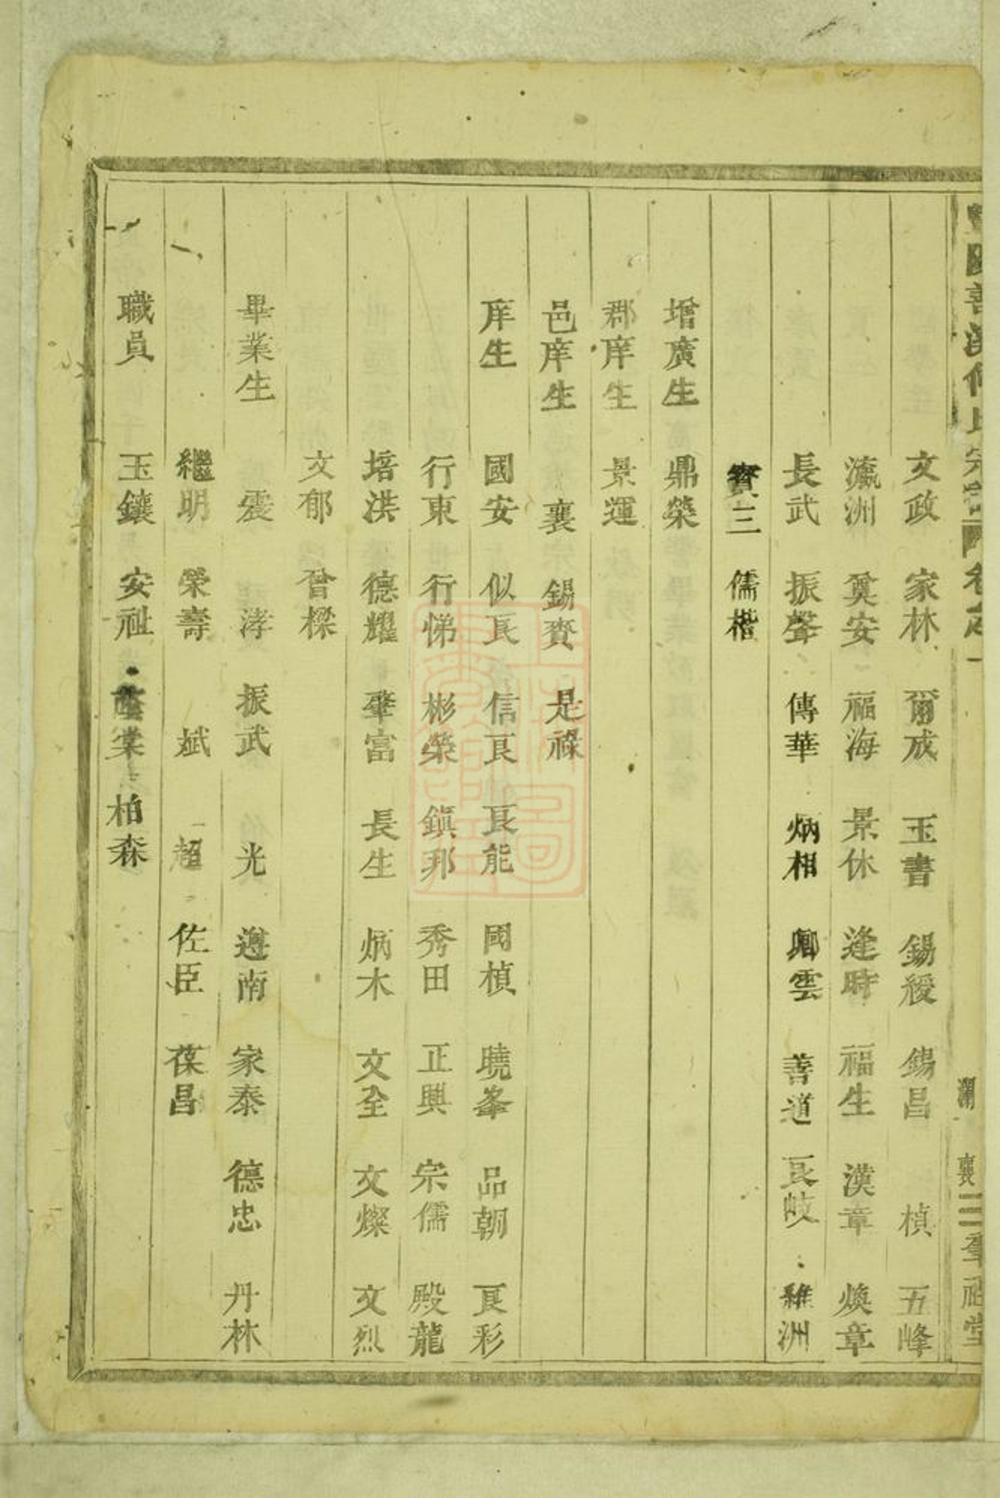 善溪何氏宗譜 卷之一
瀾 襄 三 肇祖堂
文政 家林 爾成 玉書 錫綬 錫昌 楨 五峰
瀛洲 奠安 福海 景休 逢時 福生 漢章 煥章
長武 振聲 傳華 炳相 卿雲 善道 良岐 雅洲
賓三 儒楷
增廣生 鼎榮
郡庠生 景運
邑庠生 襄 錫賚 是祿
庠生 國安 似良 信良 良能 國楨 曉峯 品朝 良彩
行東 行悌 彬榮 鎮邦 秀田 正興 宗儒 殿龍
培洪 德耀 肇富 長生 炳木 文全 文燦 文烈
文郁 曾樑
畢業生 震 涍 振武 光 遵南 家泰 德忠 丹林
繼明 榮壽 斌 超 佐臣 葆昌
職員 玉鑲 安祉 蔭棠 柏森